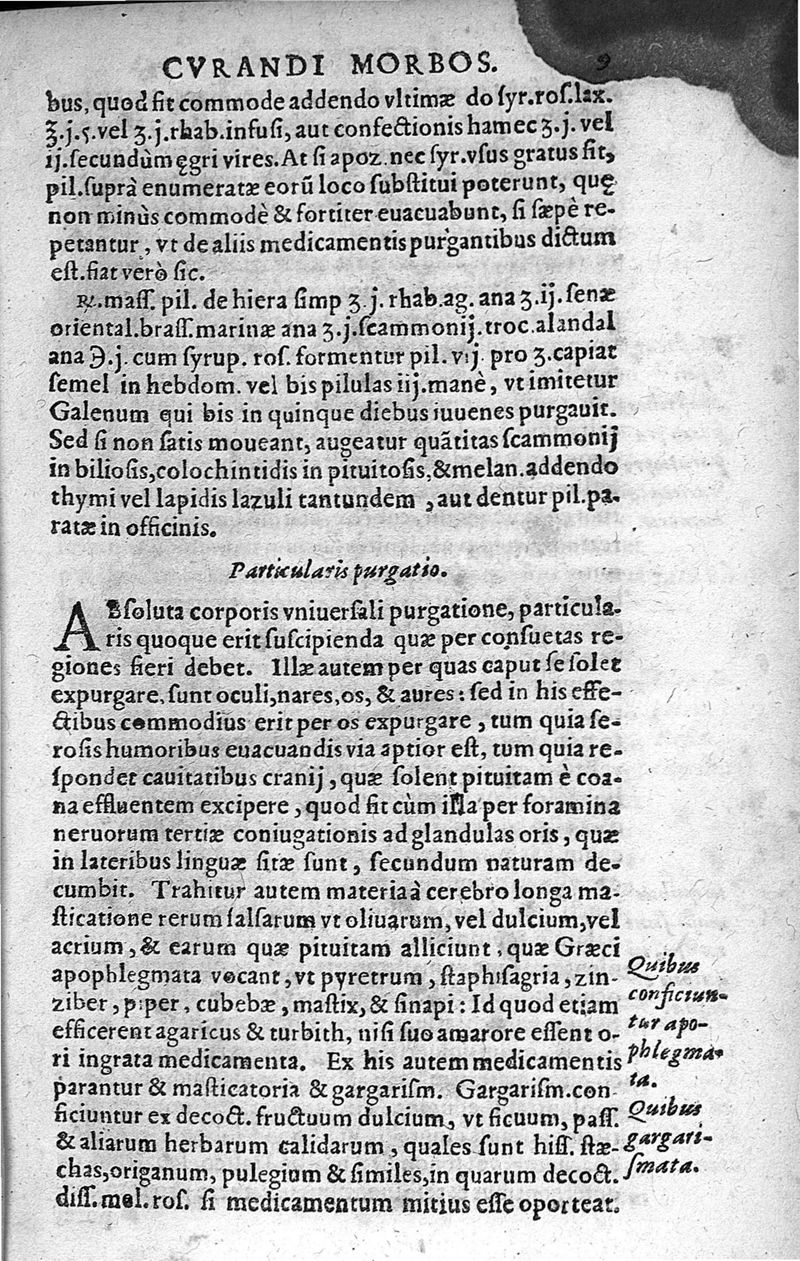 CVRANDI MORBOS. 9
bus, quod fit commode addendo vltimæ do syr.ros.lax.
ʒ.j.ς.vel ʒ.j.rhab.infusi, aut confectionis hamec ʒ.j. vel
ij.secundùm ęgri vires. At si apoz. nec syr.vsus gratus sit,
pil.suprà enumeratæ eorū loco substitui poterunt, quę
non minùs commodè & fortiter euacuabunt, si sæpè re-
petantur, vt de aliis medicamentis purgantibus dictum
est.fiat verò sic.
℞.mass. pil. de hiera simp ʒ.j. rhab.ag. ana ʒ.ij.senæ
oriental.brass.marinæ ana ʒ.j.scammonij.troc.alandal
ana ℈.j. cum syrup. ros. formentur pil. vij. pro ʒ.capiat
semel in hebdom. vel bis pilulas iij.manè, vt imitetur
Galenum qui bis in quinque diebus iuuenes purgauit.
Sed si non satis moueant, augeatur quātitas scammonij
in biliosis, colochintidis in pituitosis,& melan.addendo
thymi vel lapidis lazuli tantundem, aut dentur pil.pa-
ratæ in officinis.
Particularis purgatio.
ABsoluta corporis vniuersali purgatione, particula-
ris quoque erit suscipienda quæ per consuetas re-
giones fieri debet. Illæ autem per quas caput se solet
expurgare, sunt oculi, nares, os, & aures: sed in his effe-
ctibus commodius erit per os expurgare, tum quia se-
rosis humoribus euacuandis via aptior est, tum quia re-
spondet cauitatibus cranij, quæ solent pituitam è coa-
na effluentem excipere, quod fit cùm illa per foramina
neruorum tertiæ coniugationis ad glandulas oris, quæ
in lateribus linguæ sitæ sunt, secundum naturam de-
cumbit. Trahitur autem materia à cerebro longa ma-
sticatione rerum salsarum vt oliuarum, vel dulcium, vel
acrium, & earum quæ pituitam alliciunt, quæ Græci
apophlegmata vocant, vt pyretrum, staphisagria, zin-
ziber, piper, cubebæ, mastix, & sinapi: Id quod etiam
efficerent agaricus & turbith, nisi suo amarore essent o-
ri ingrata medicamenta. Ex his autem medicamentis
parantur & masticatoria & gargarism. Gargarism.con
ficiuntur ex decoct. fructuum dulcium, vt ficuum, pass.
& aliarum herbarum calidarum, quales sunt hiss. stæ-
chas, origanum, pulegium & similes, in quarum decoct.
diss.mel.ros. si medicamentum mitius esse oporteat.
Quibus
conficiun-
tur apo-
phlegma-
ta.
Quibus
gargari-
smata.